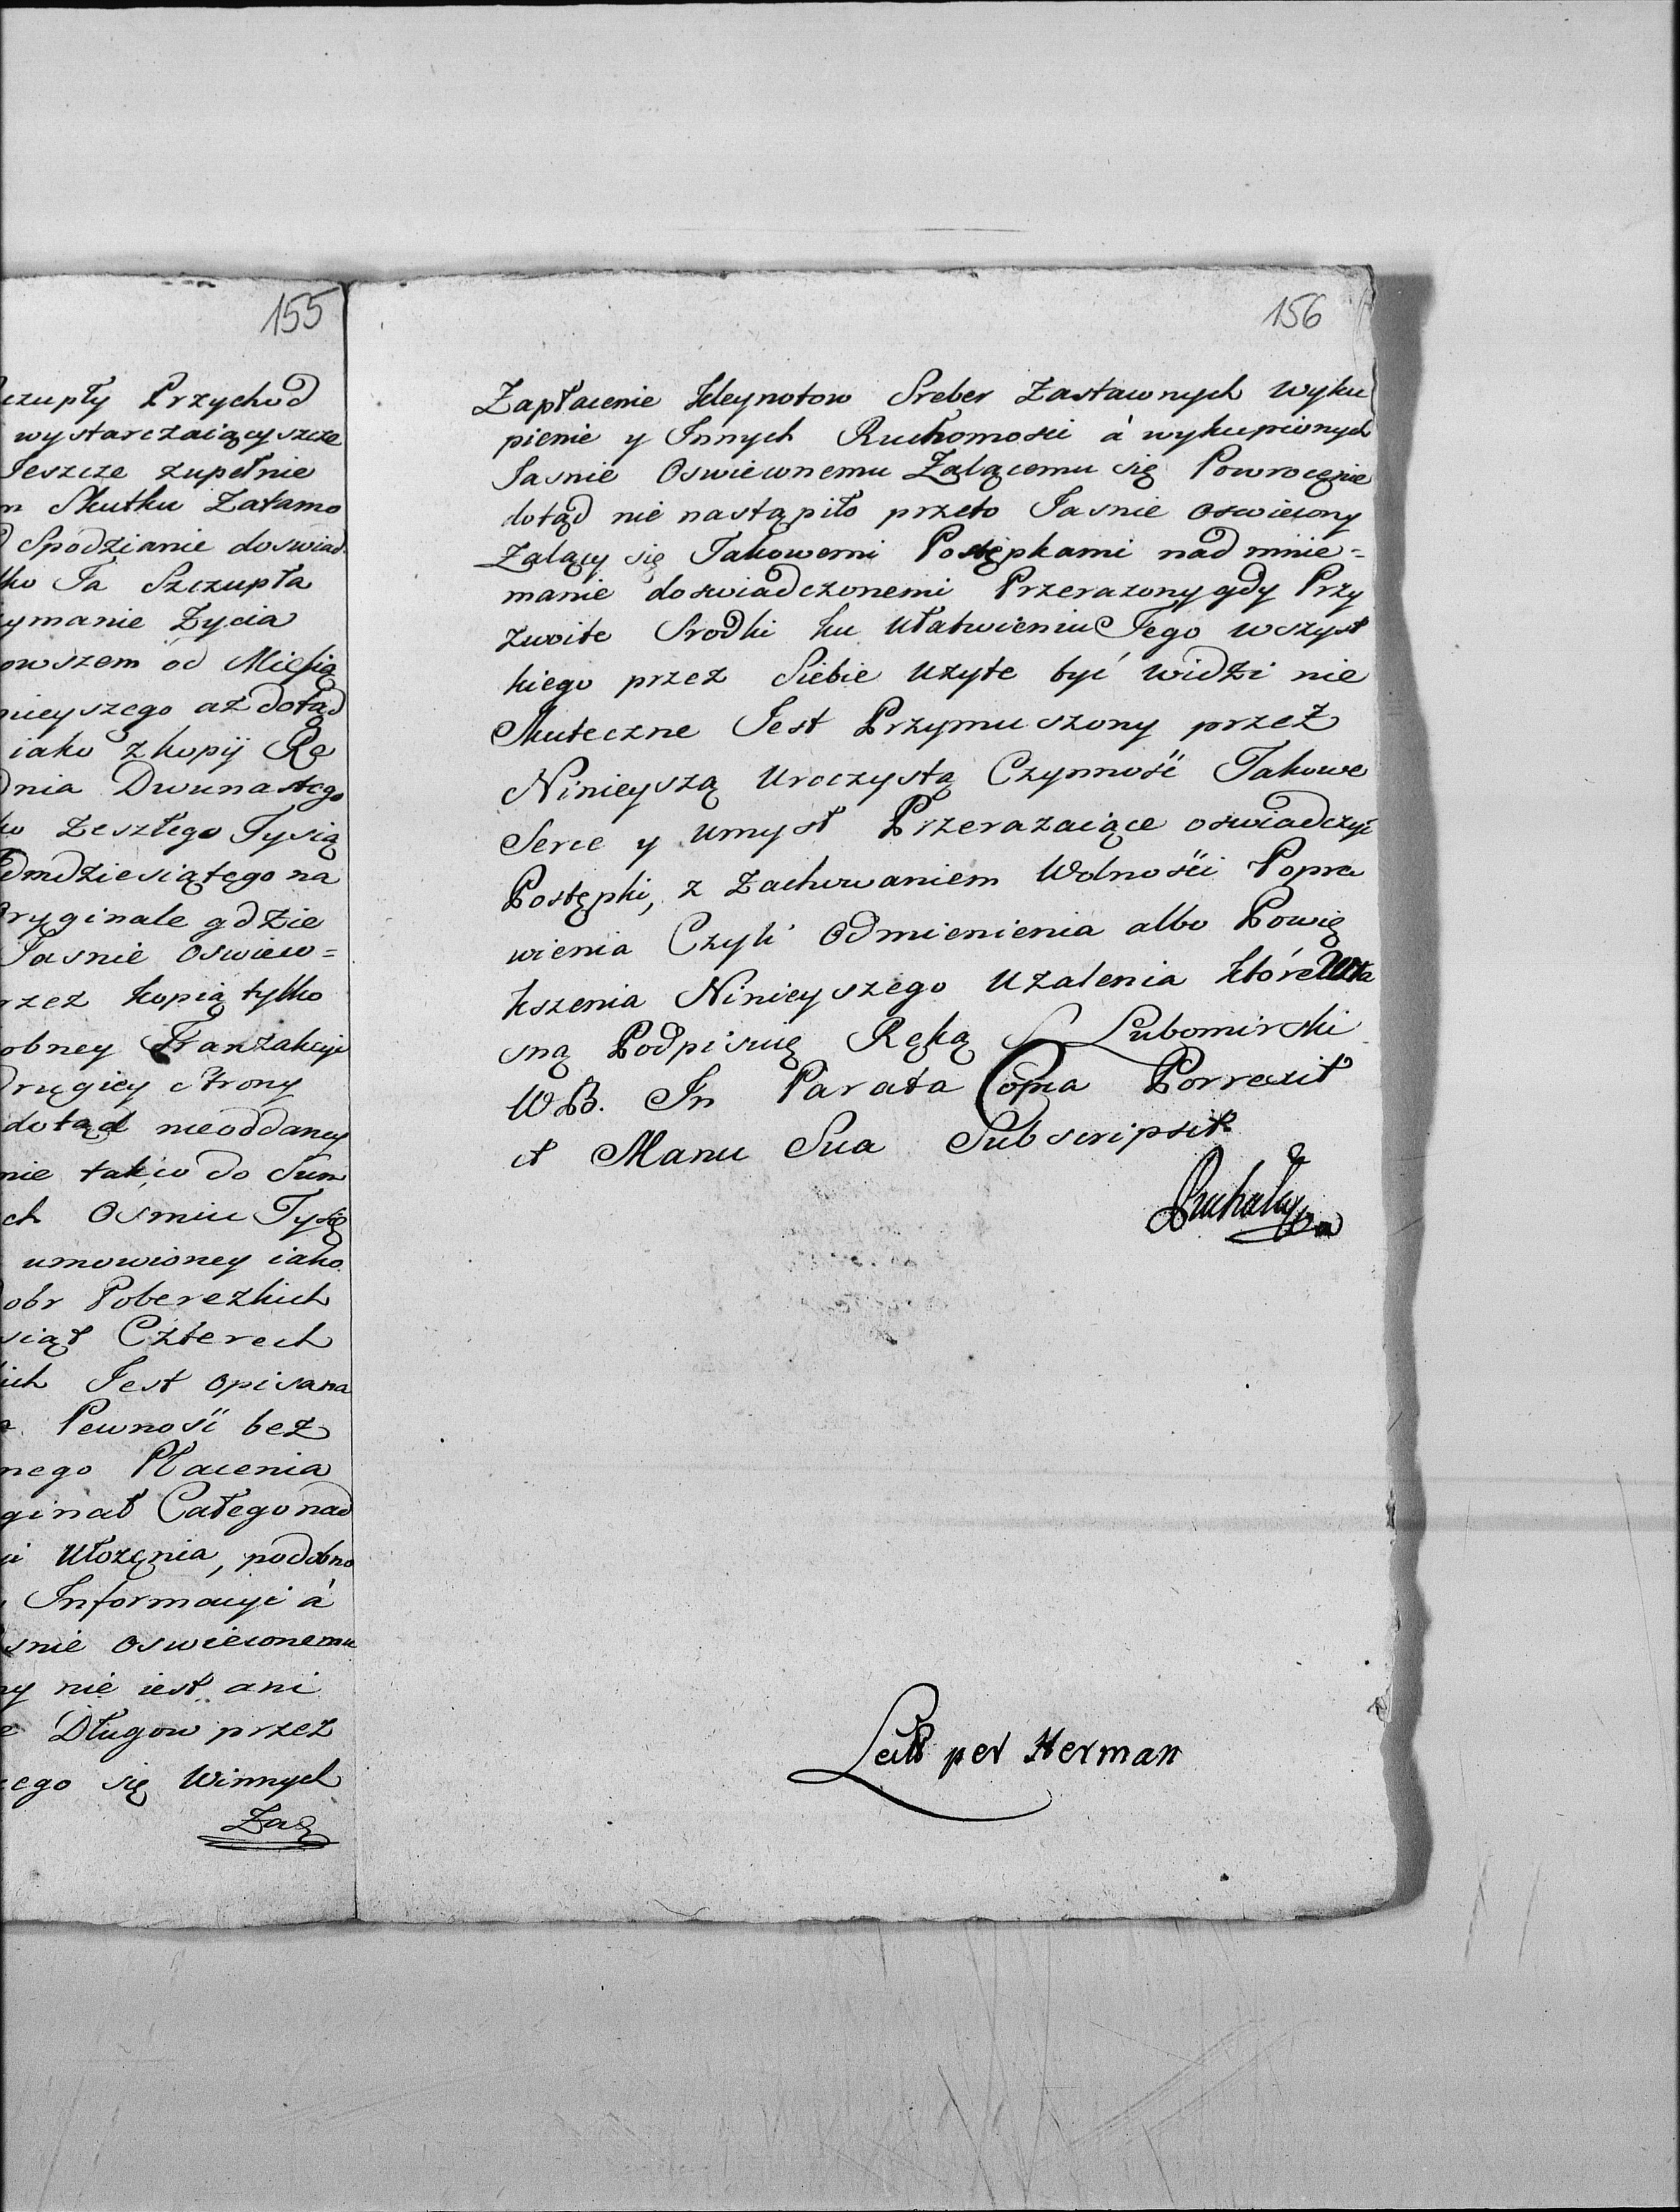 155
czupły Przychod
wystarczaiący szcze
Jeszcze zupełnie
m Skutku Zatamo
Spodzianie doswiad
ko Ta Szczupła
ymanie Zycia
owszem od Miesią
nieyszego az dotąd
iako z kopij Re
dnia Dwunastego
ku Zeszłego Tysią
dmdziesiątego na
Oryginale gdzie
Jasnie Oswiew=
rzez kopią tylko
obney Tranzakcyi
Drugiey strony
dotąd nieoddaney
nie takio do Sum
ch Osmiu Tysię
umowioney iako
obr Poberezkich
siąt Czterech
ich Jest opisana
Pewnośi bez
nego Płacenia
ginał Całego nad
Ułozęnia, podobno
Informacyi á
snie oswieconemu
ny nie iest ani
Długow przez
cego się Winnych
Zaz
156
Zapłacenie Kleynotow Sreber Zastawnych wyku
pienie y Innych Ruchomosci á wykupionych
Jasnie Oswieconemu Zalącemu się Powrocęnie
dotąd nie nastąpiło przeto Jasnie oswiecony
Zalący się Takowemi Postępkami nad mnie=
manie doswiadczonemi Przerazony gdy Przy
zwoite Srodki ku Ułatwieniu Tego wszyst
kiego przez Siebie uzyte być widzi nie
Skuteczne Jest Przymuszony przez
Ninieyszą Uroczystą Czynność Takowe
Serce y Umysł Przerazaiące oswiadczyć
Postępki, z Zachowaniem Wolnośći Popra
wienia Czyli Odmienienia albo Powię
kszenia Ninieyszego Uzalenia które Wła
sną Podpisuię Ręką Lubomirski
W B. In Parata Copia Porrexit
et Manu Sua Subscripsit
Lect per Herman